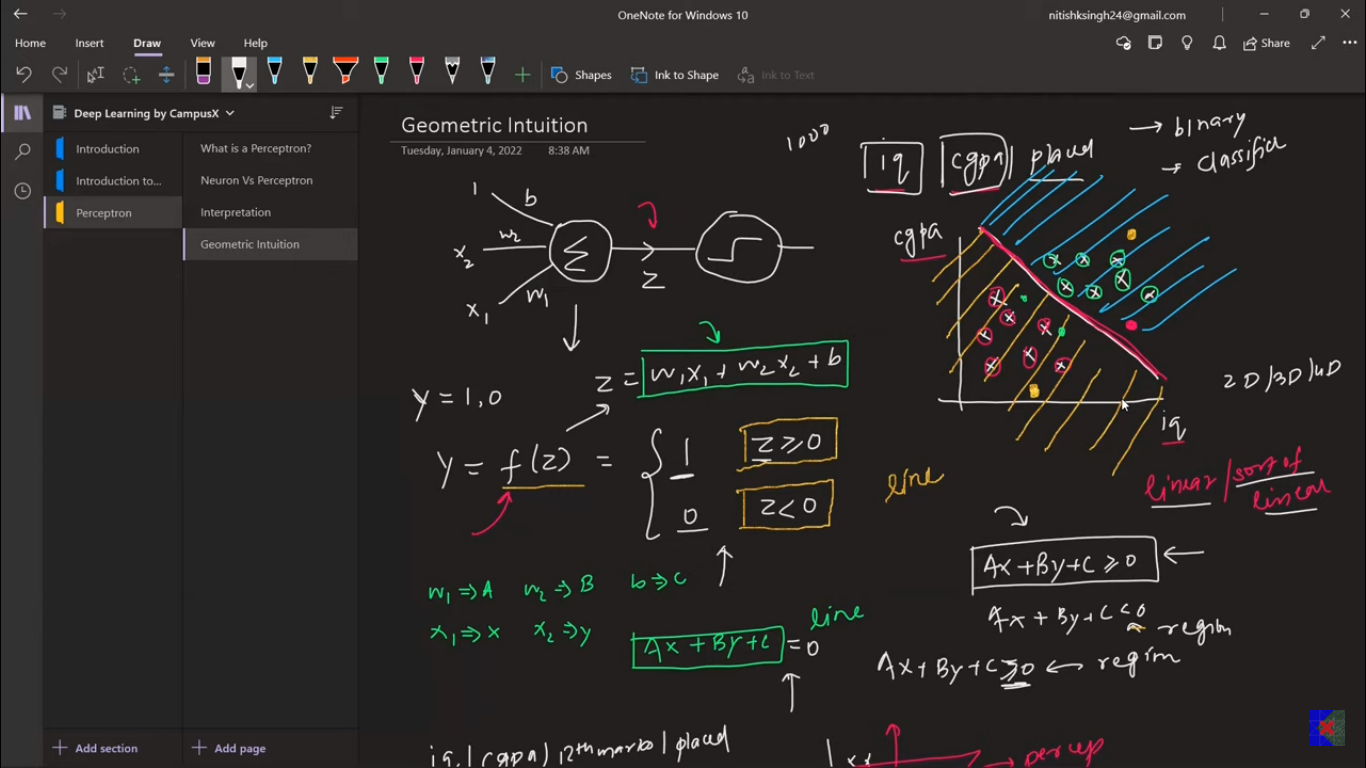 OneNote for Windows 10
nitishksingh24@gmail.com
Home Insert Draw View Help
Share
Shapes Ink to Shape Ink to Text
Deep Learning by CampusX
Introduction
Introduction to...
Perceptron
What is a Perceptron?
Neuron Vs Perceptron
Interpretation
Geometric Intuition
Add section
Add page
Geometric Intuition
Tuesday, January 4, 2022 8:38 AM
1000
iq | cgpa | placed
→ binary
→ classifier
1 b
x₂ w₂ Σ Z
x₁ w₁
z = w₁x₁ + w₂x₂ + b
y = 1,0
y = f(z) = { 1 z ≥ 0
0 z < 0
w₁ ⇒ A w₂ ⇒ B b ⇒ C
x₁ ⇒ x x₂ ⇒ y
Ax + By + C = 0 line
iq | cgpa | 12th marks | placed
cgpa
iq
2D/3D/4D
line
linear / sort of
linear
Ax + By + C ≥ 0 ←
Ax + By + C < 0 → region
Ax + By + C ≥ 0 ← region
xx
→ percep